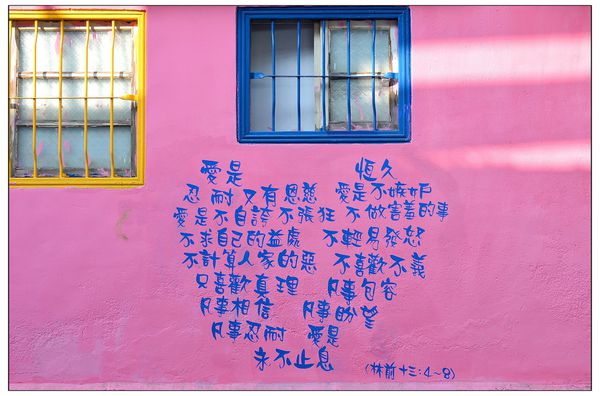 愛是 恆久
忍耐又有恩慈 愛是不嫉妒
愛是不自誇不張狂 不做害羞的事
不求自己的益處 不輕易發怒
不計算人家的惡 不喜歡不義
只喜歡真理 凡事包容
凡事相信 凡事盼望
凡事忍耐 愛是
永不止息 (林前十三:4~8)